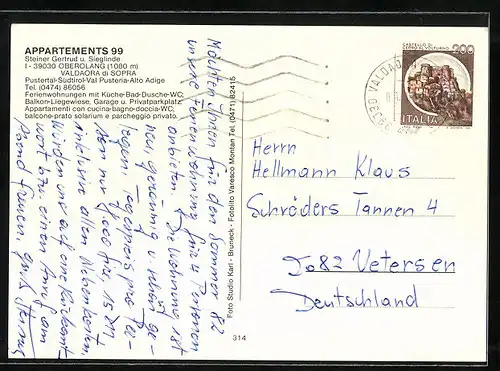 APPARTEMENTS 99
Steiner Gertrud u. Sieglinde
I - 39030 OBEROLANG (1080 m)
VALDAORA di SOPRA
Pustertal-Südtirol-Val Pusteria-Alto Adige
Tel. (0474) 86056
Ferienwohnungen mit Küche-Bad-Dusche-WC,
Balkon-Liegewiese, Garage u. Privatparkplatz
Appartamenti con cucina-bagno-doccia-WC,
balcone-prato solarium e parcheggio privato.
Möchten Ihnen für den Sommer 82
unsere Ferienwohnung für 4 Personen
anbieten. Die Wohnung ist
neu, geräumig u. schön ge-
legen. Tagespreis pro Per-
son nur 8000 Lire, 15 DM
inklusive allen Nebenkosten.
Würden uns auf eine Rückant-
wort bzw. einen Anruf am
Abend freuen.
Foto Studio Karl - Bruneck - Fotolito Varesco Montan Tel. (0471) 82415
314
39030 VALDAO
CASTELLO DI
200
ITALIA
Herrn
Hellmann Klaus
Schröders Tannen 4
2082 Uetersen
Deutschland